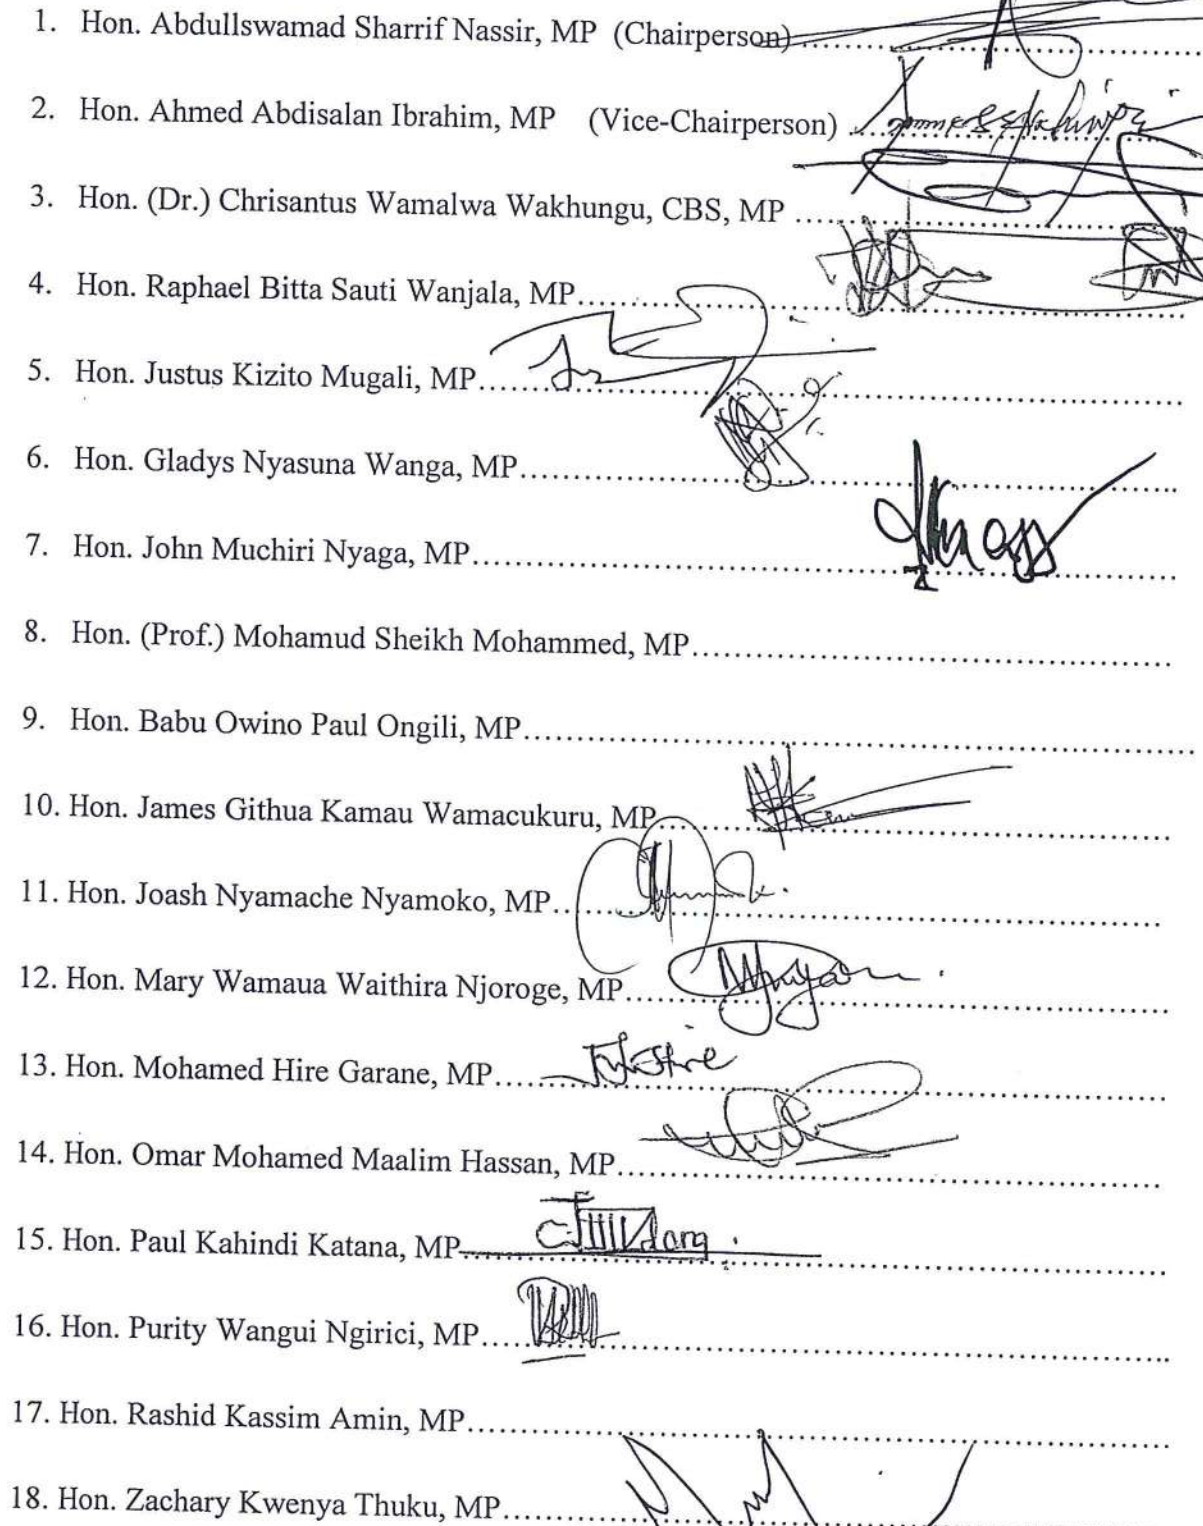 1. Hon. Abdullswamad Sharrif Nassir, MP (Chairperson)
2. Hon. Ahmed Abdisalan Ibrahim, MP (Vice-Chairperson)
3. Hon. (Dr.) Chrisantus Wamalwa Wakhungu, CBS, MP
4. Hon. Raphael Bitta Sauti Wanjala, MP
5. Hon. Justus Kizito Mugali, MP
6. Hon. Gladys Nyasuna Wanga, MP
7. Hon. John Muchiri Nyaga, MP
8. Hon. (Prof.) Mohamud Sheikh Mohammed, MP
9. Hon. Babu Owino Paul Ongili, MP
10. Hon. James Githua Kamau Wamacukuru, MP
11. Hon. Joash Nyamache Nyamoko, MP
12. Hon. Mary Wamaua Waithira Njoroge, MP
13. Hon. Mohamed Hire Garane, MP
14. Hon. Omar Mohamed Maalim Hassan, MP
15. Hon. Paul Kahindi Katana, MP
16. Hon. Purity Wangui Ngirici, MP
17. Hon. Rashid Kassim Amin, MP
18. Hon. Zachary Kwenya Thuku, MP